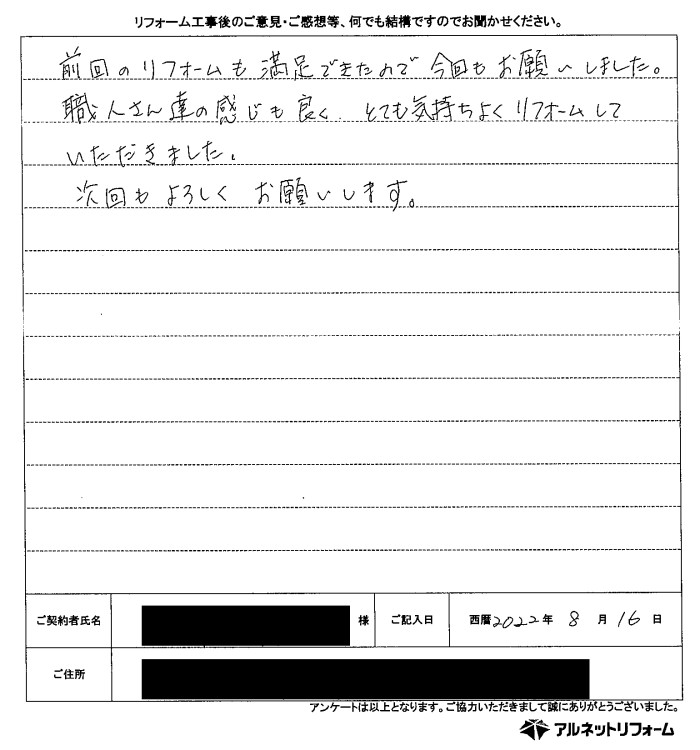 リフォーム工事後のご意見・ご感想等、何でも結構ですのでお聞かせください。
前回のリフォームも満足できたので今回もお願いしました。
職人さん達の感じも良く、とても気持ちよくリフォームして
いただきました。
次回もよろしくお願いします。
ご契約者氏名 様 ご記入日 西暦2022年 8 月 16 日
ご住所
アンケートは以上となります。ご協力いただきまして誠にありがとうございました。
アルネットリフォーム